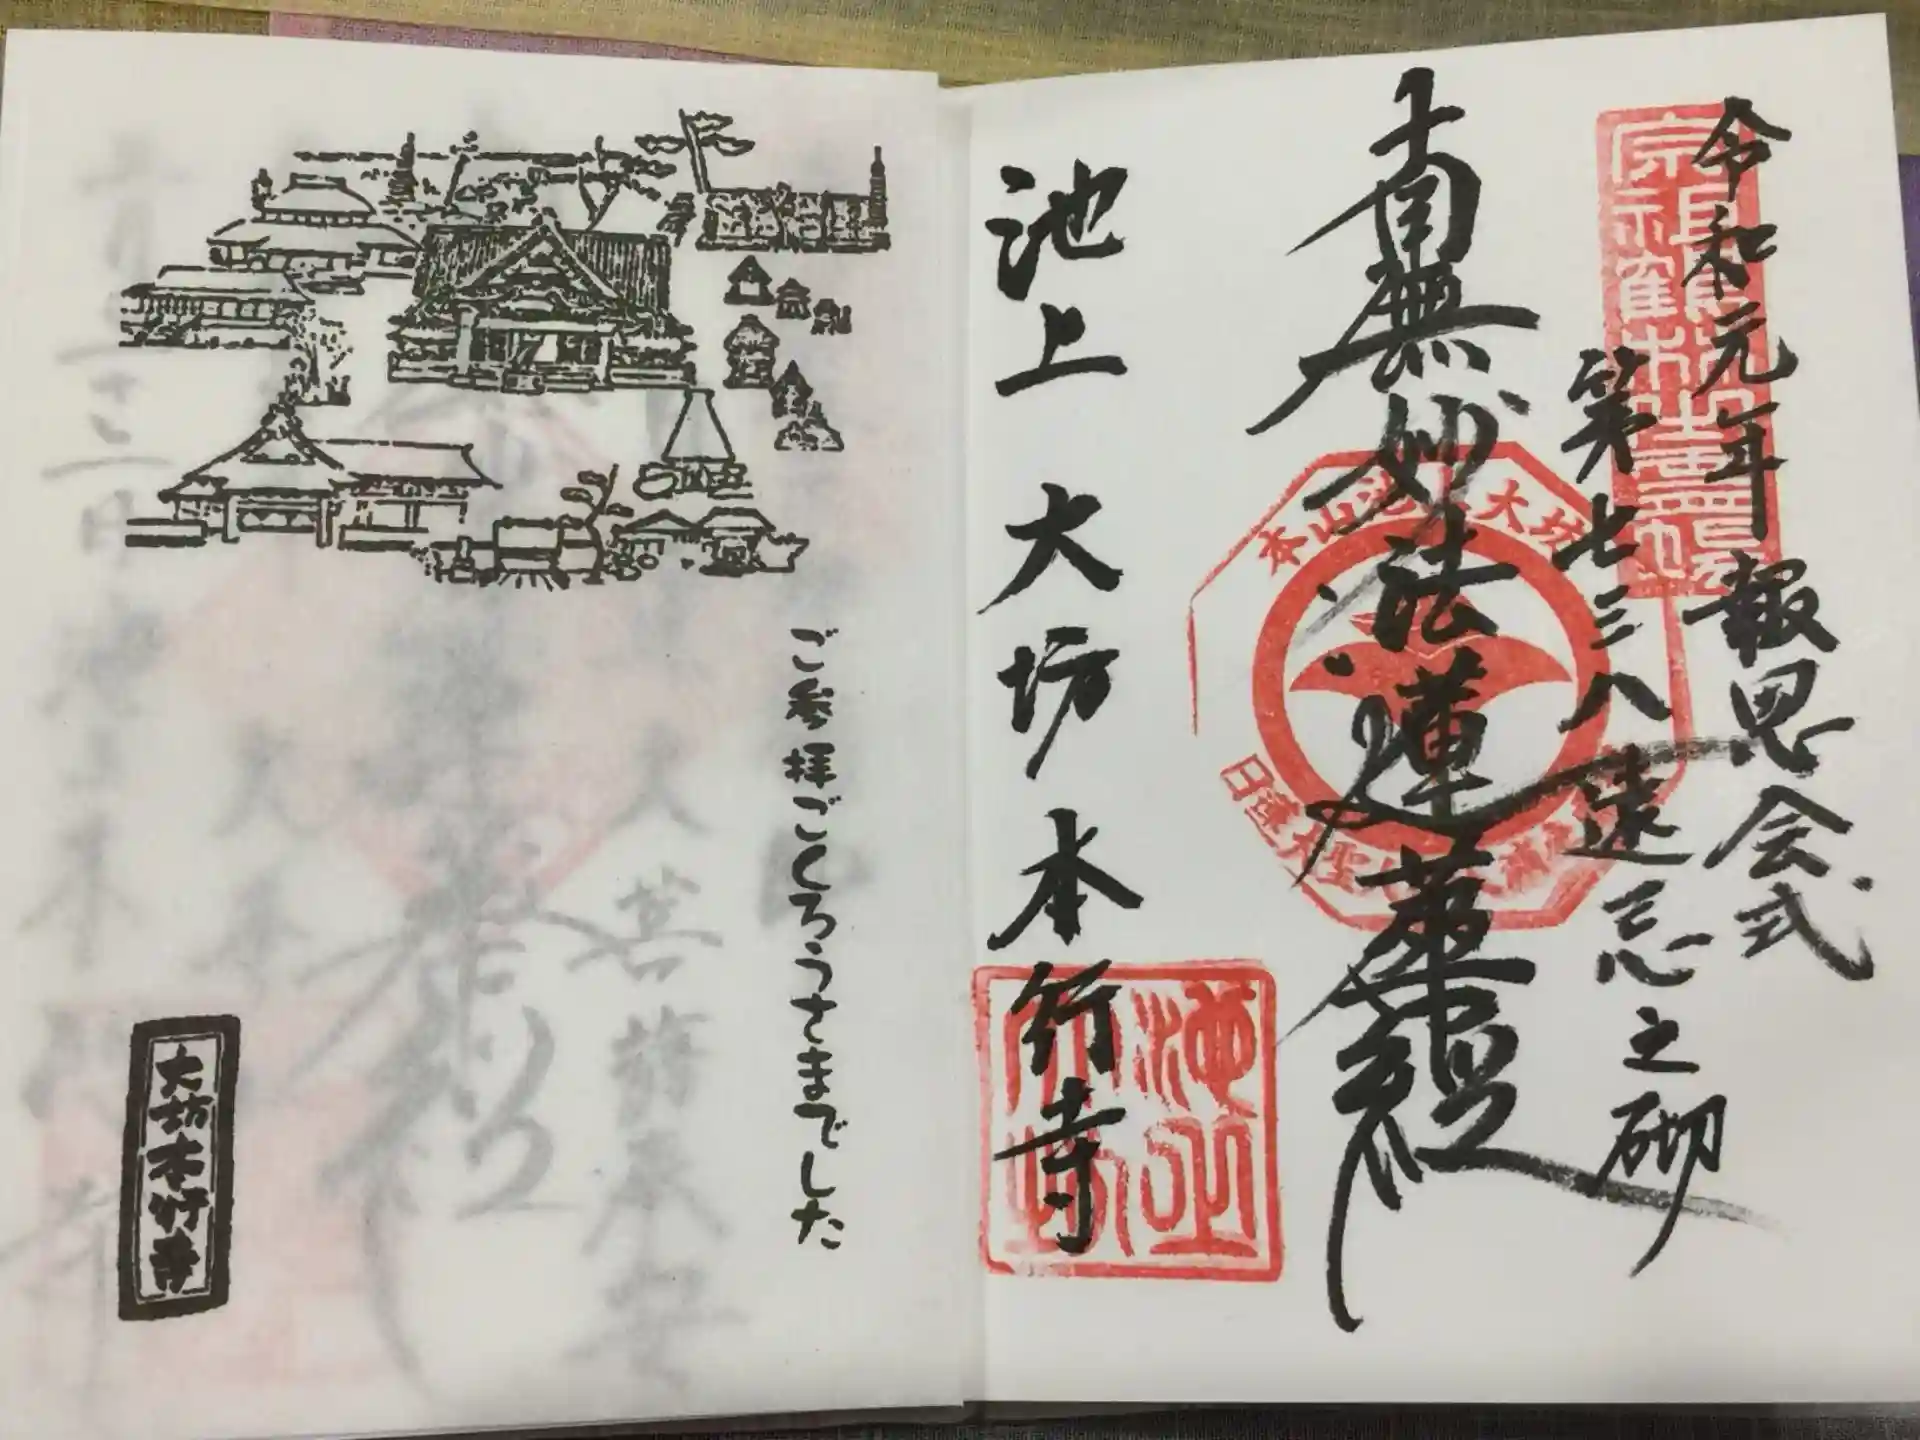 令和元年報恩会式
第七三八遠忌之砌
南無妙法蓮華経
本山池上大坊
日蓮大聖人
池上 大坊 本行寺
池上
大坊
ご参拝ごくろうさまでした
大坊本行寺